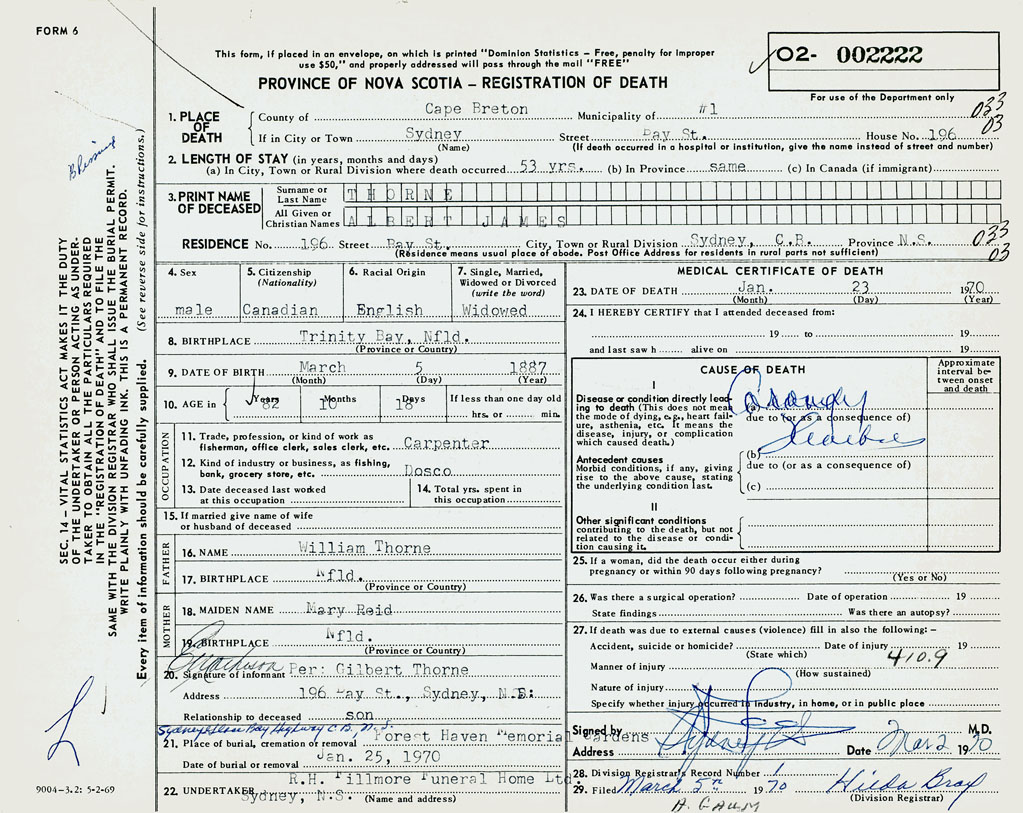 FORM 6
This form, if placed in an envelope, on which is printed "Dominion Statistics – Free, penalty for improper
use $50," and properly addressed will pass through the mail "FREE"
O2- 002222
PROVINCE OF NOVA SCOTIA – REGISTRATION OF DEATH
For use of the Department only
1. PLACE OF DEATH
County of Cape Breton Municipality of #1
033
03
If in City or Town Sydney Street Bay St. House No. 196
(Name) (If death occurred in a hospital or institution, give the name instead of street and number)
2. LENGTH OF STAY (in years, months and days)
(a) In City, Town or Rural Division where death occurred 53 yrs. (b) In Province same (c) In Canada (if immigrant)
3. PRINT NAME OF DECEASED
Surname or Last Name THORNE
All Given or Christian Names ALBERT JAMES
RESIDENCE No. 196 Street Bay St. City, Town or Rural Division Sydney, C.B. Province N.S.
033
03
(Residence means usual place of abode. Post Office Address for residents in rural parts not sufficient)
4. Sex
male
5. Citizenship
(Nationality)
Canadian
6. Racial Origin
English
7. Single, Married,
Widowed or Divorced
(write the word)
Widowed
8. BIRTHPLACE Trinity Bay, Nfld.
(Province or Country)
9. DATE OF BIRTH March 5 1887
(Month) (Day) (Year)
10. AGE in Years 82 Months 10 Days 18 If less than one day old
hrs. or min.
OCCUPATION
11. Trade, profession, or kind of work as
fisherman, office clerk, sales clerk, etc. Carpenter
12. Kind of industry or business, as fishing,
bank, grocery store, etc. Dosco
13. Date deceased last worked
at this occupation
14. Total yrs. spent in
this occupation
15. If married give name of wife
or husband of deceased
FATHER
16. NAME William Thorne
17. BIRTHPLACE Nfld.
(Province or Country)
MOTHER
18. MAIDEN NAME Mary Reid
19. BIRTHPLACE Nfld.
(Province or Country)
20. Signature of informant Per: Gilbert Thorne
Address 196 Bay St., Sydney, N.S.
Relationship to deceased son
21. Place of burial, cremation or removal Forest Haven Memorial Gardens
Date of burial or removal Jan. 25, 1970
R.H. Fillmore Funeral Home Ltd.
22. UNDERTAKER Sydney, N.S. (Name and address)
MEDICAL CERTIFICATE OF DEATH
23. DATE OF DEATH Jan. 23 1970
(Month) (Day) (Year)
24. I HEREBY CERTIFY that I attended deceased from:
19 to 19
and last saw h alive on 19
CAUSE OF DEATH
Approximate
interval be-
tween onset
and death
I
Disease or condition directly lead-
ing to death (This does not mean
the mode of dying, e.g., heart fail-
ure, asthenia, etc. It means the
disease, injury, or complication
which caused death.)
(a)
due to (or as a consequence of)
Antecedent causes
Morbid conditions, if any, giving
rise to the above cause, stating
the underlying condition last.
(b)
due to (or as a consequence of)
(c)
II
Other significant conditions
contributing to the death, but not
related to the disease or condi-
tion causing it.
25. If a woman, did the death occur either during
pregnancy or within 90 days following pregnancy?
(Yes or No)
26. Was there a surgical operation? Date of operation 19
State findings Was there an autopsy?
27. If death was due to external causes (violence) fill in also the following: –
Accident, suicide or homicide? Date of injury 19
(State which)
410.9
Manner of injury
(How sustained)
Nature of injury
Specify whether injury occurred in industry, in home, or in public place
Signed by M.D.
Address Sydney Date Mar 2 1970
28. Division Registrar's Record Number 1
29. Filed March 5th 1970 Hilda Bray
(Division Registrar)
A. GAUM
SEC. 14 – VITAL STATISTICS ACT MAKES IT THE DUTY
OF THE UNDERTAKER OR PERSON ACTING AS UNDER-
TAKER TO OBTAIN ALL THE PARTICULARS REQUIRED
IN THE "REGISTRATION OF DEATH" AND TO FILE THE
SAME WITH THE DIVISION REGISTRAR WHO SHALL ISSUE THE BURIAL PERMIT.
WRITE PLAINLY WITH UNFADING INK. THIS IS A PERMANENT RECORD.
Every item of information should be carefully supplied. (See reverse side for instructions.)
9004-3.2: 5-2-69